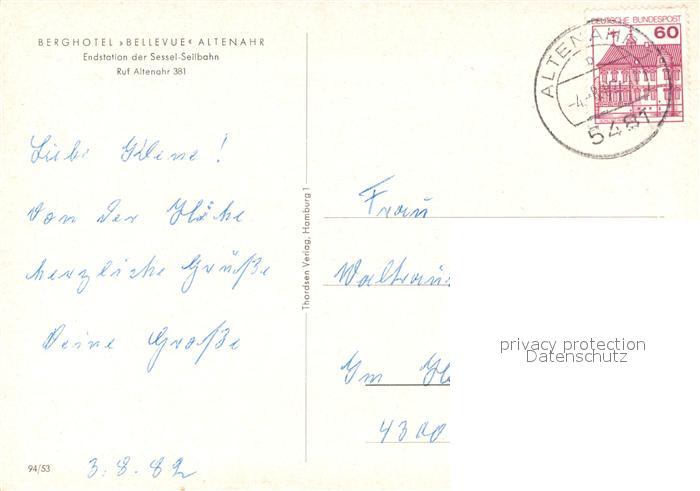 BERGHOTEL »BELLEVUE« ALTENAHR
Endstation der Sessel-Seilbahn
Ruf Altenahr 381
Liebe !
Von der Höhe
herzliche Grüße
Deine Große
3.8.82
94/53
Thordsen Verlag, Hamburg 1
DEUTSCHE BUNDESPOST
60
ALTENAHR
5481
Frau
Waltrau
Im
4300
privacy protection
Datenschutz